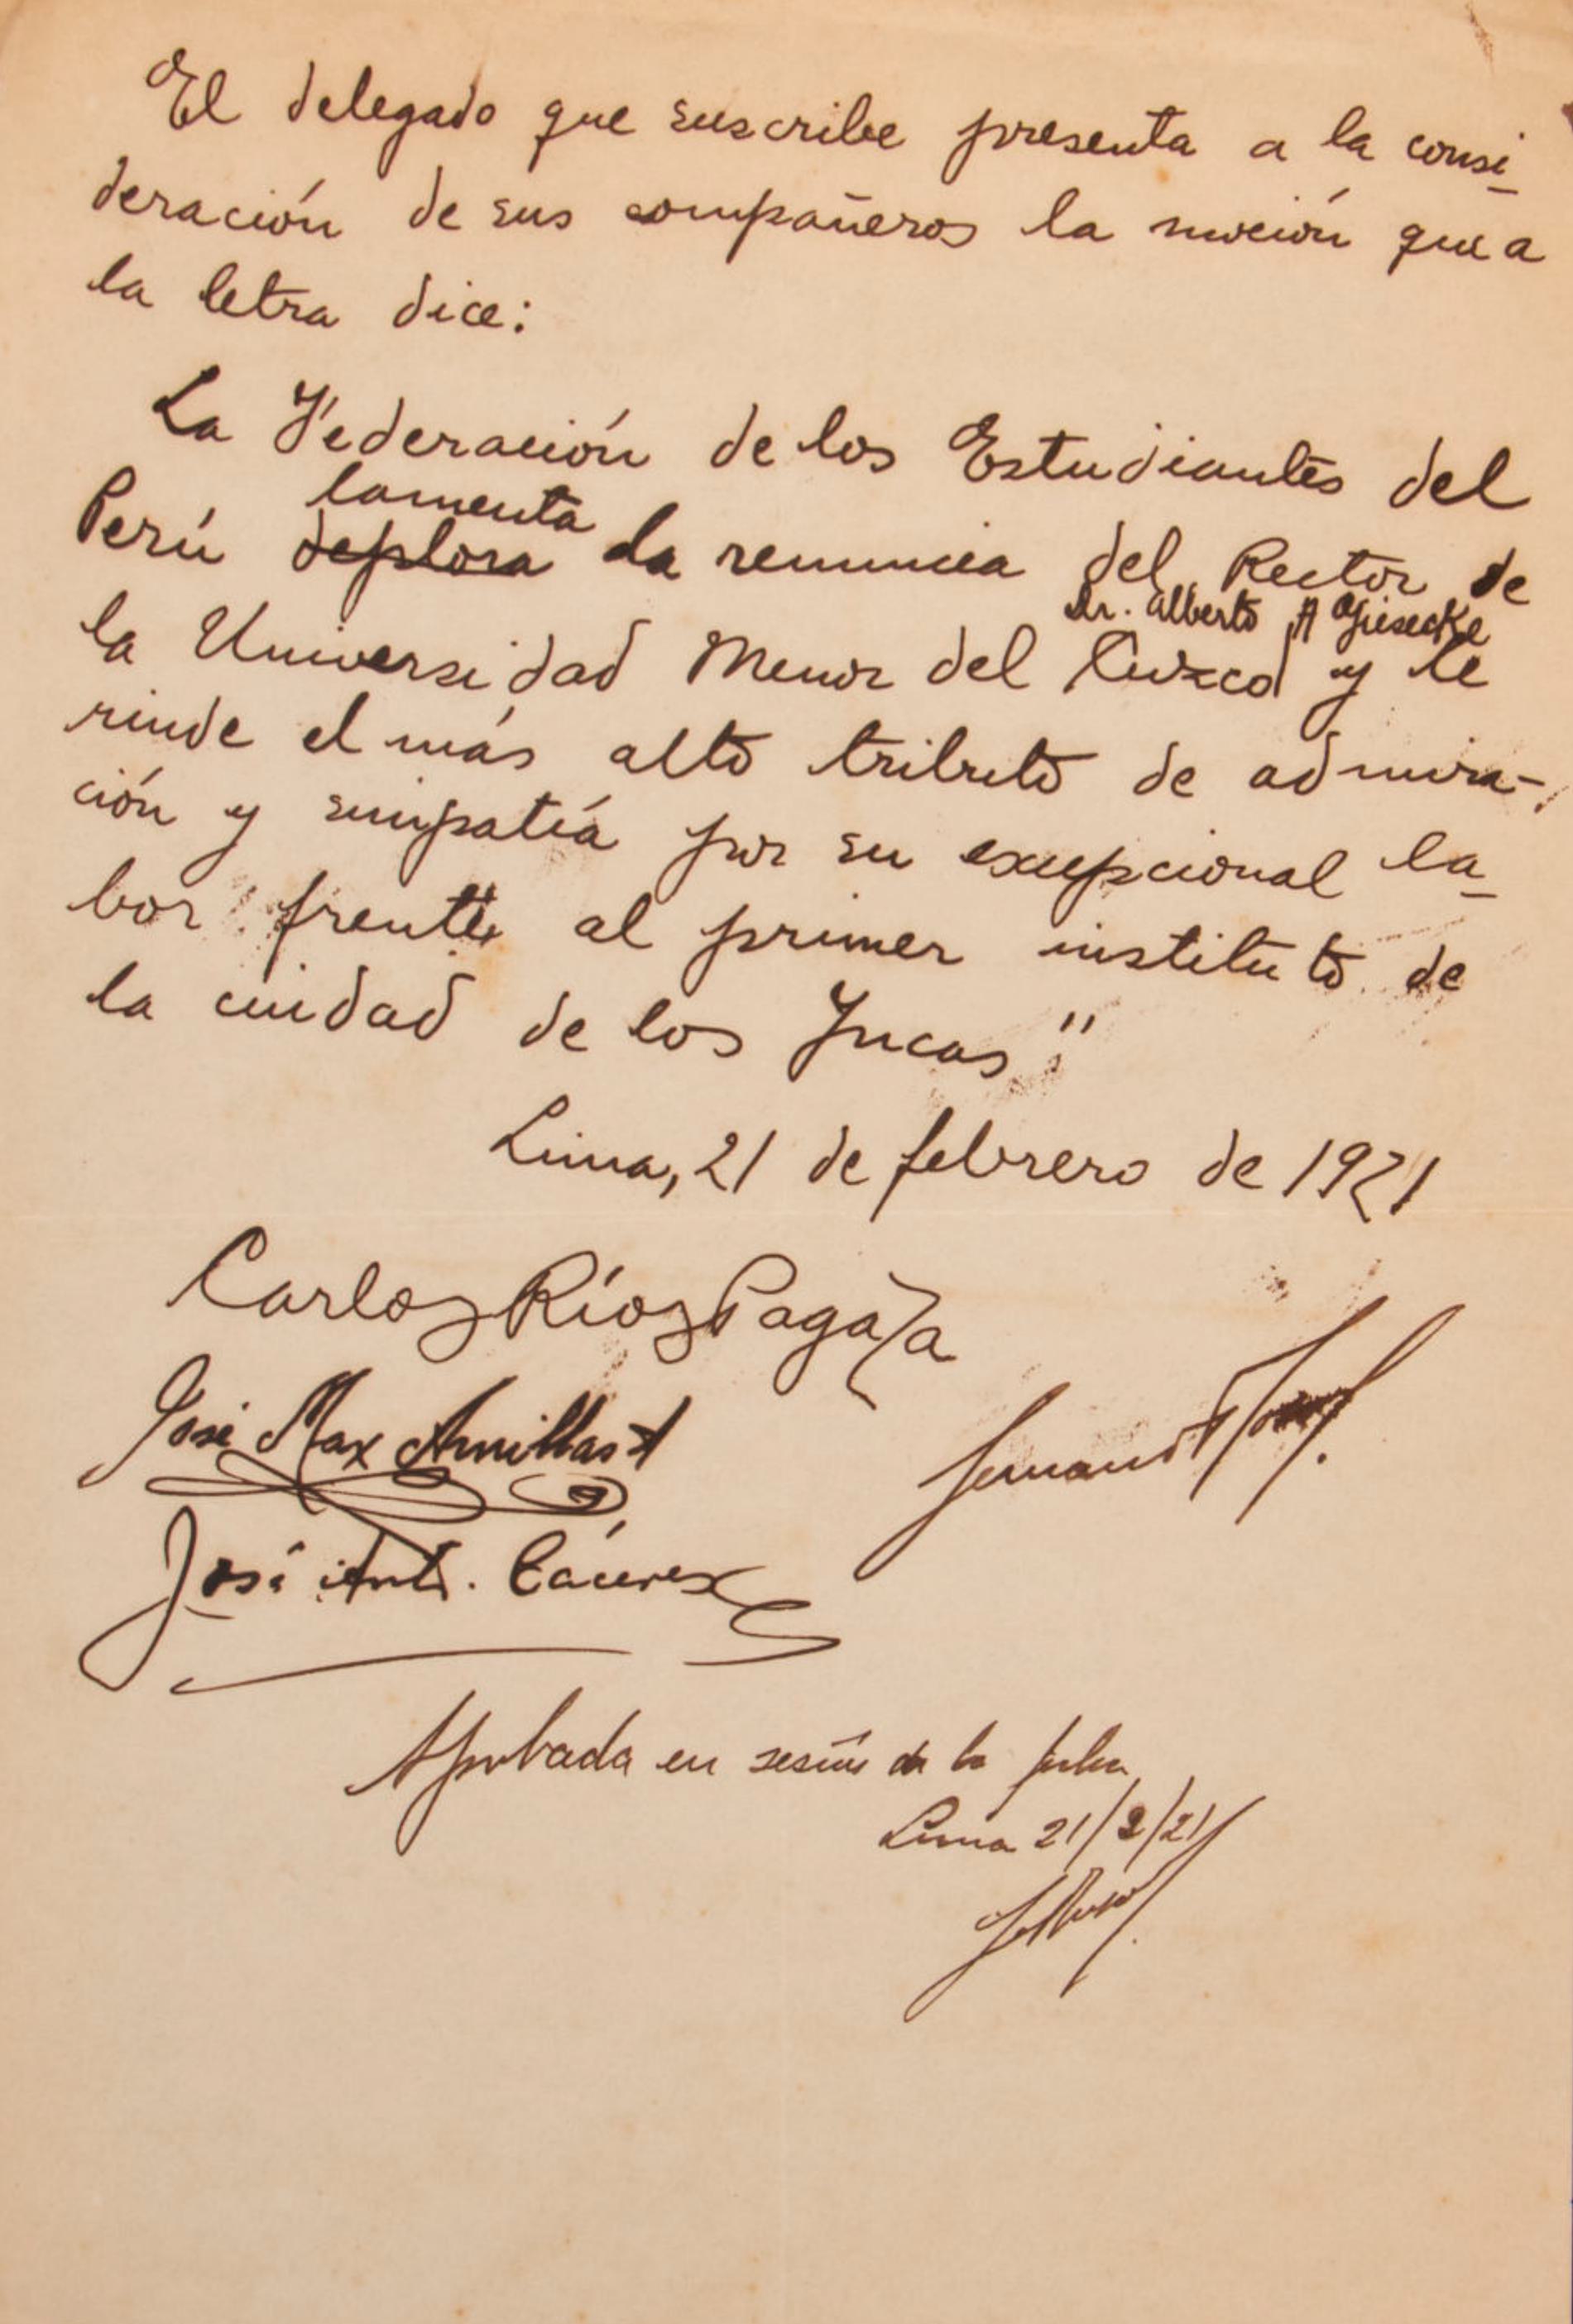 El delegado que suscribe presenta a la consi-
deración de sus compañeros la moción que a
la letra dice:
La Federación de los Estudiantes del
lamenta
Perú deplora la renuncia del Rector de
Dr. Alberto A Giesecke
la Universidad Menor del Cuzco y le
rinde el más alto tributo de admira-
ción y simpatía por su excepcional la-
bor frente al primer instituto de
la ciudad de los Incas"
Lima, 21 de febrero de 1921
Carlos Ríos Pagaza
José Max Arnillas A
José Ant. Cáceres
Aprobada en sesión de la fecha
Lima 21/2/21